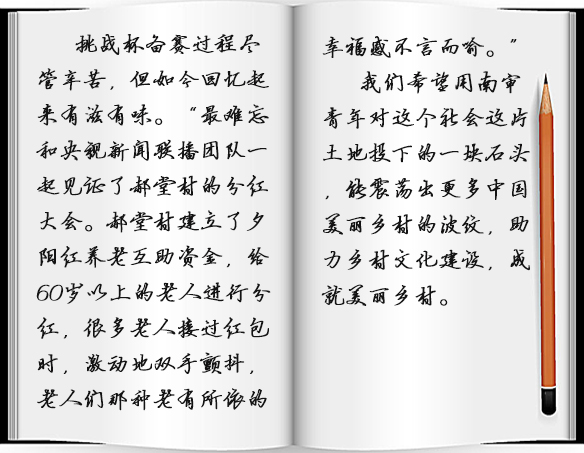 挑战杯备赛过程尽
管辛苦，但如今回忆起
来有滋有味。“最难忘
和央视新闻联播团队一
起见证了郝堂村的分红
大会。郝堂村建立了夕
阳红养老互助资金，给
60岁以上的老人进行分
红，很多老人接过红包
时，激动地双手颤抖，
老人们那种老有所依的
幸福感不言而喻。”
我们希望用南审
青年对这个社会这片
土地投下的一块石头
，能震荡出更多中国
美丽乡村的波纹，助
力乡村文化建设，成
就美丽乡村。